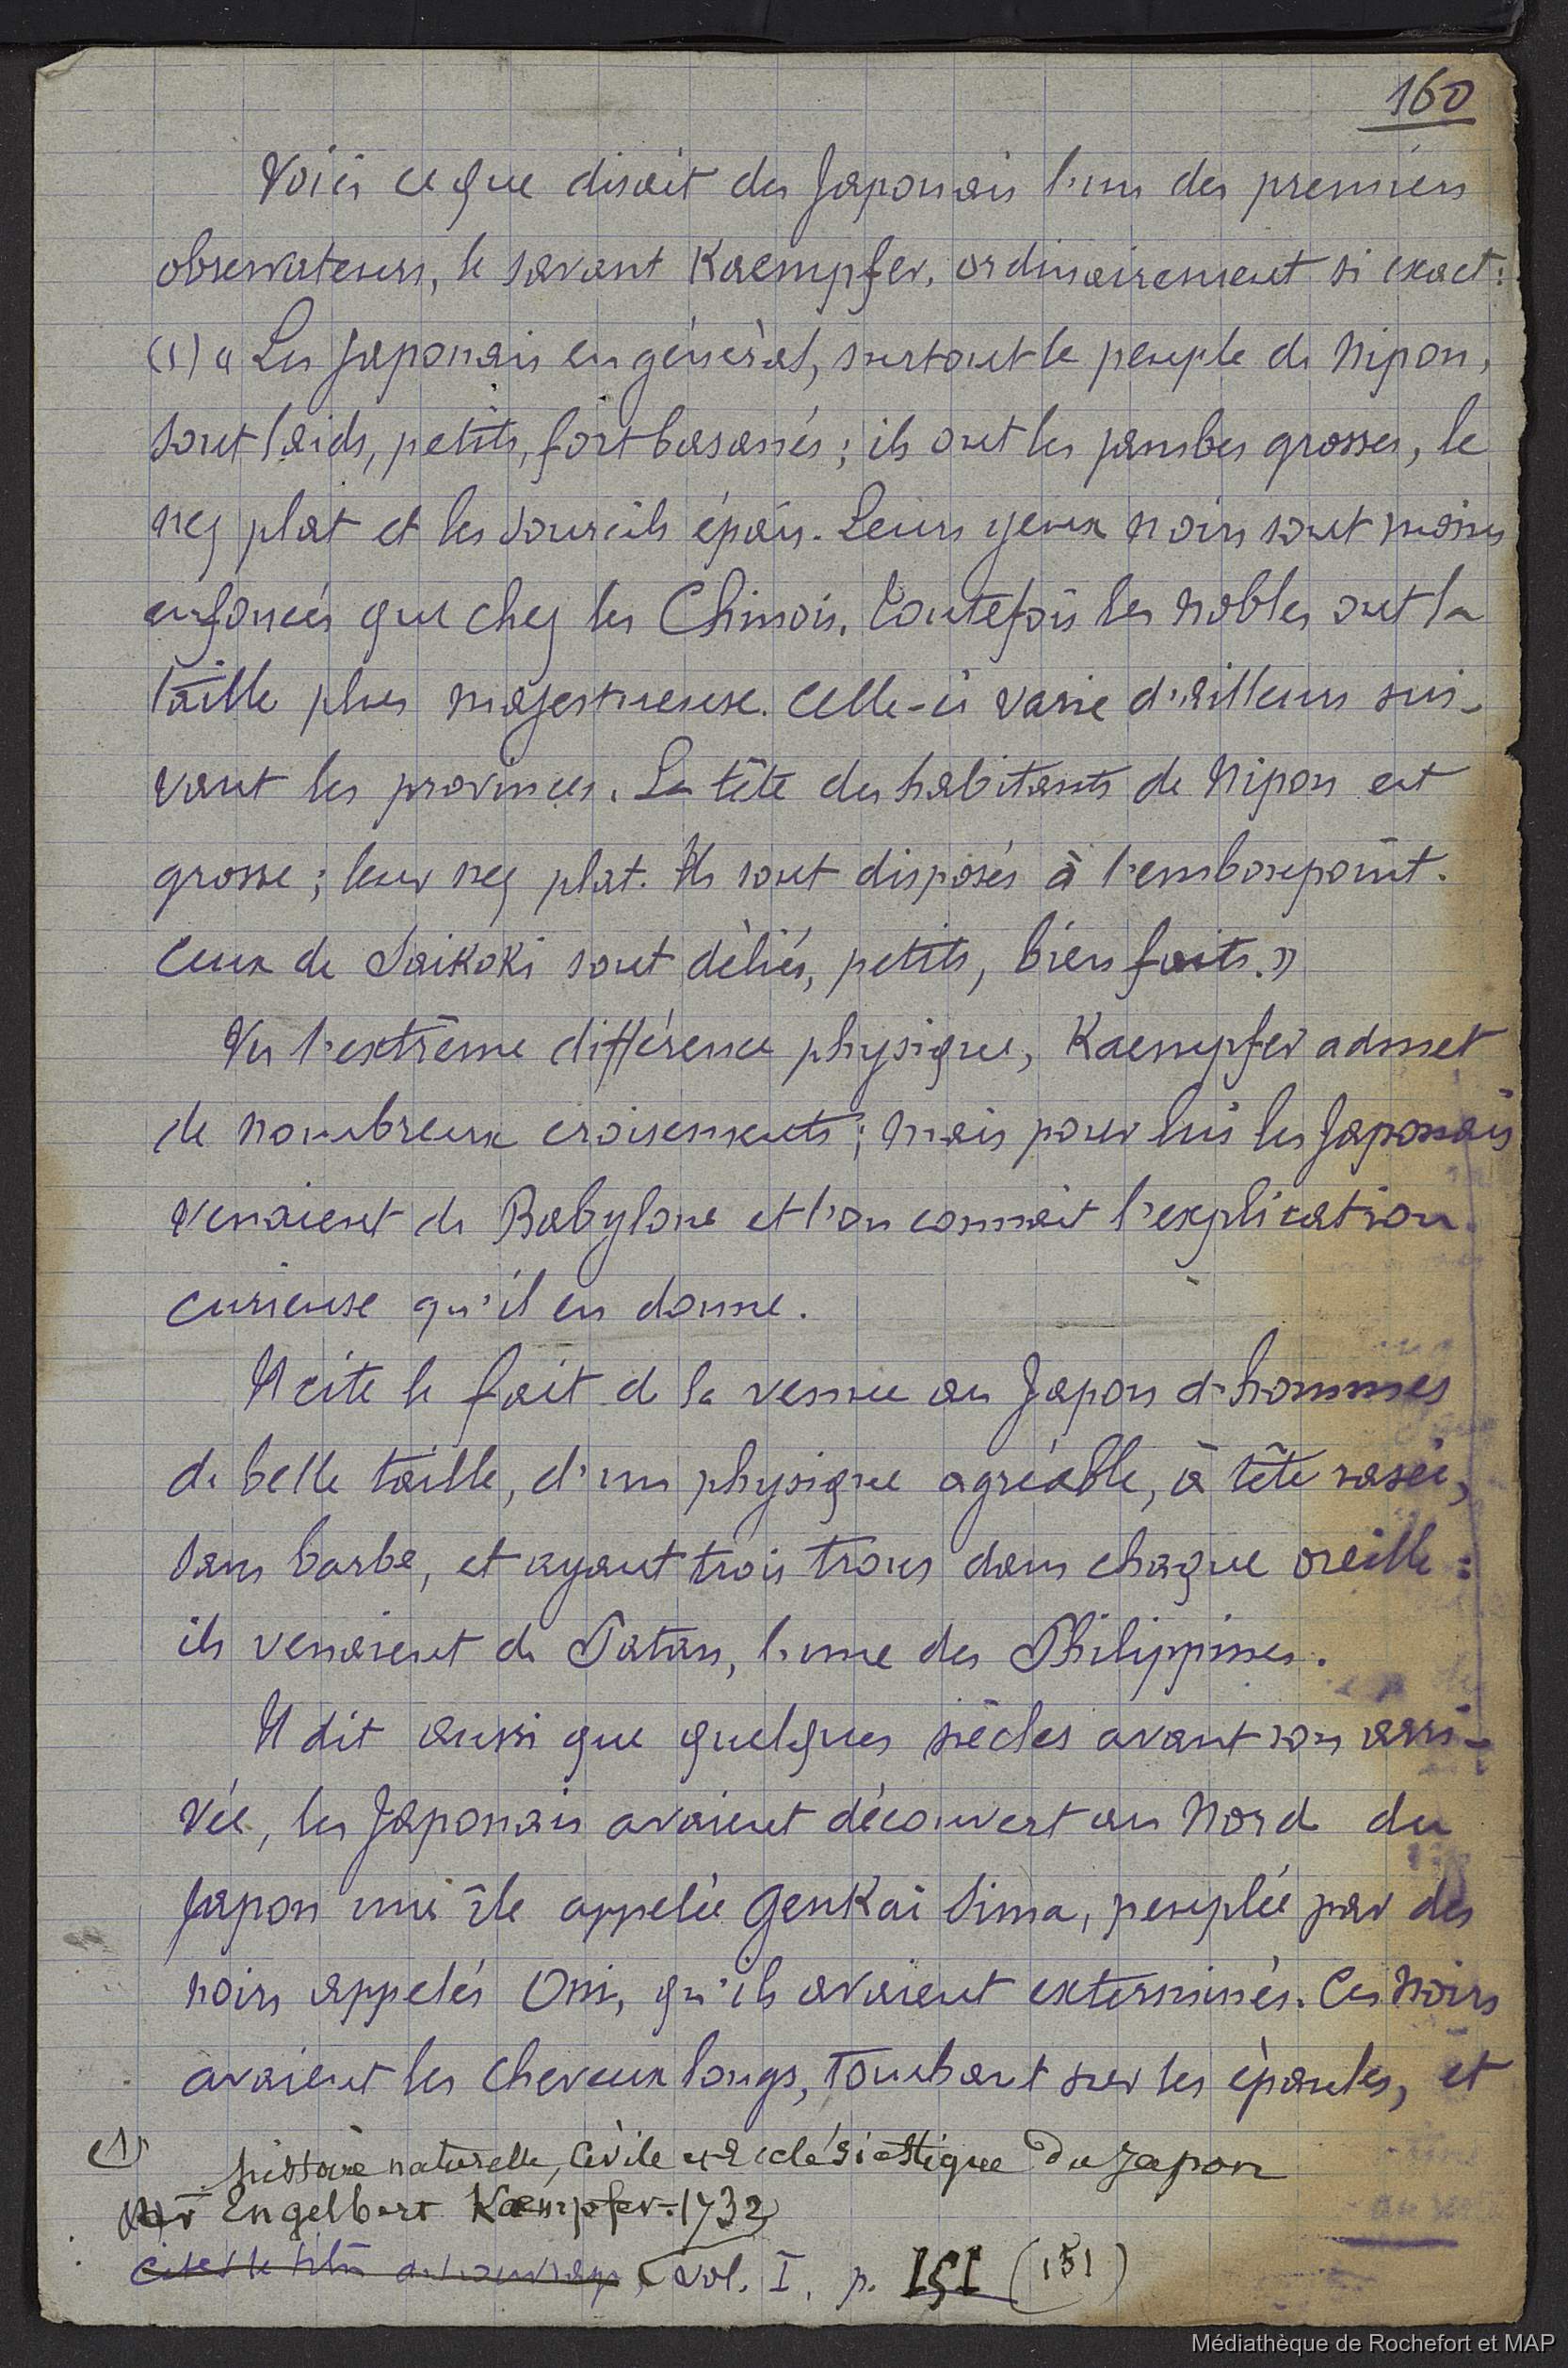 160
Voici ce que disait des Japonais l'un des premiers
observateurs, le savant Kaempfer, ordinairement si exact:
(1) « Les Japonais en général, surtout le peuple de Nipon,
sont laids, petits, fort basanés; ils ont les jambes grosses, le
nez plat et les sourcils épais. Leurs yeux noirs sont moins
enfoncés que chez les Chinois. Toutefois les nobles ont la
taille plus majestueuse. Celle-ci varie d'ailleurs sui-
vant les provinces. La tête des habitants de Nipon est
grosse; leur nez plat. Ils sont disposés à l'embonpoint.
Ceux de Saikoki sont déliés, petits, bien faits. »
Vu l'extrême différence physique, Kaempfer admet
de nombreux croisements; mais pour lui les Japonais
venaient de Babylone et l'on connait l'explication
curieuse qu'il en donne.
Il cite le fait de la venue au Japon d'hommes
de belle taille, d'un physique agréable, à tête rasée,
sans barbe, et ayant trois trous dans chaque oreille:
ils venaient de Patan, l'une des Philippines.
Il dit aussi que quelques siècles avant son arri-
vée, les Japonais avaient découvert au Nord du
Japon une île appelée Genkai Sima, peuplée par des
noirs appelés Oni, qu'ils avaient exterminés. Ces Noirs
avaient les cheveux longs, tombant sur les épaules, et
(1)
histoire naturelle, Civile et Ecclésiastique du Japon
Engelbert Kaempfer. 1732
vol. I, p. 151 (151)
Médiathèque de Rochefort et MAP